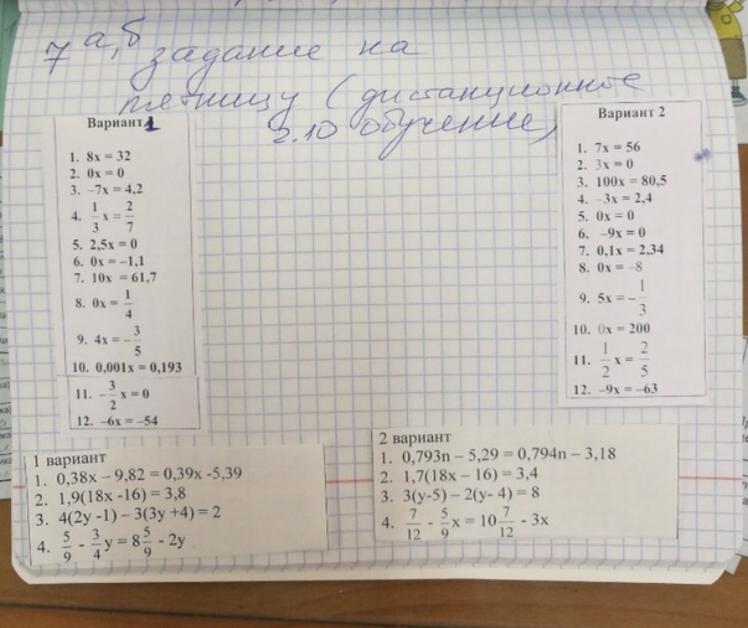 7 а,б задание на
пятницу (дистанционное
2.10 обучение)
Вариант 1
1. 8x = 32
2. 0x = 0
3. –7x = 4,2
4. 1/3 x = 2/7
5. 2,5x = 0
6. 0x = –1,1
7. 10x = 61,7
8. 0x = 1/4
9. 4x = -3/5
10. 0,001x = 0,193
11. -3/2 x = 0
12. –6x = –54
Вариант 2
1. 7x = 56
2. 3x = 0
3. 100x = 80,5
4. –3x = 2,4
5. 0x = 0
6. –9x = 0
7. 0,1x = 2,34
8. 0x = –8
9. 5x = -1/3
10. 0x = 200
11. 1/2 x = 2/5
12. –9x = –63
1 вариант
1. 0,38x – 9,82 = 0,39x -5,39
2. 1,9(18x -16) = 3,8
3. 4(2y -1) – 3(3y +4) = 2
4. 5/9 - 3/4 y = 8 5/9 - 2y
2 вариант
1. 0,793n – 5,29 = 0,794n – 3,18
2. 1,7(18x – 16) = 3,4
3. 3(y-5) – 2(y- 4) = 8
4. 7/12 - 5/9 x = 10 7/12 - 3x